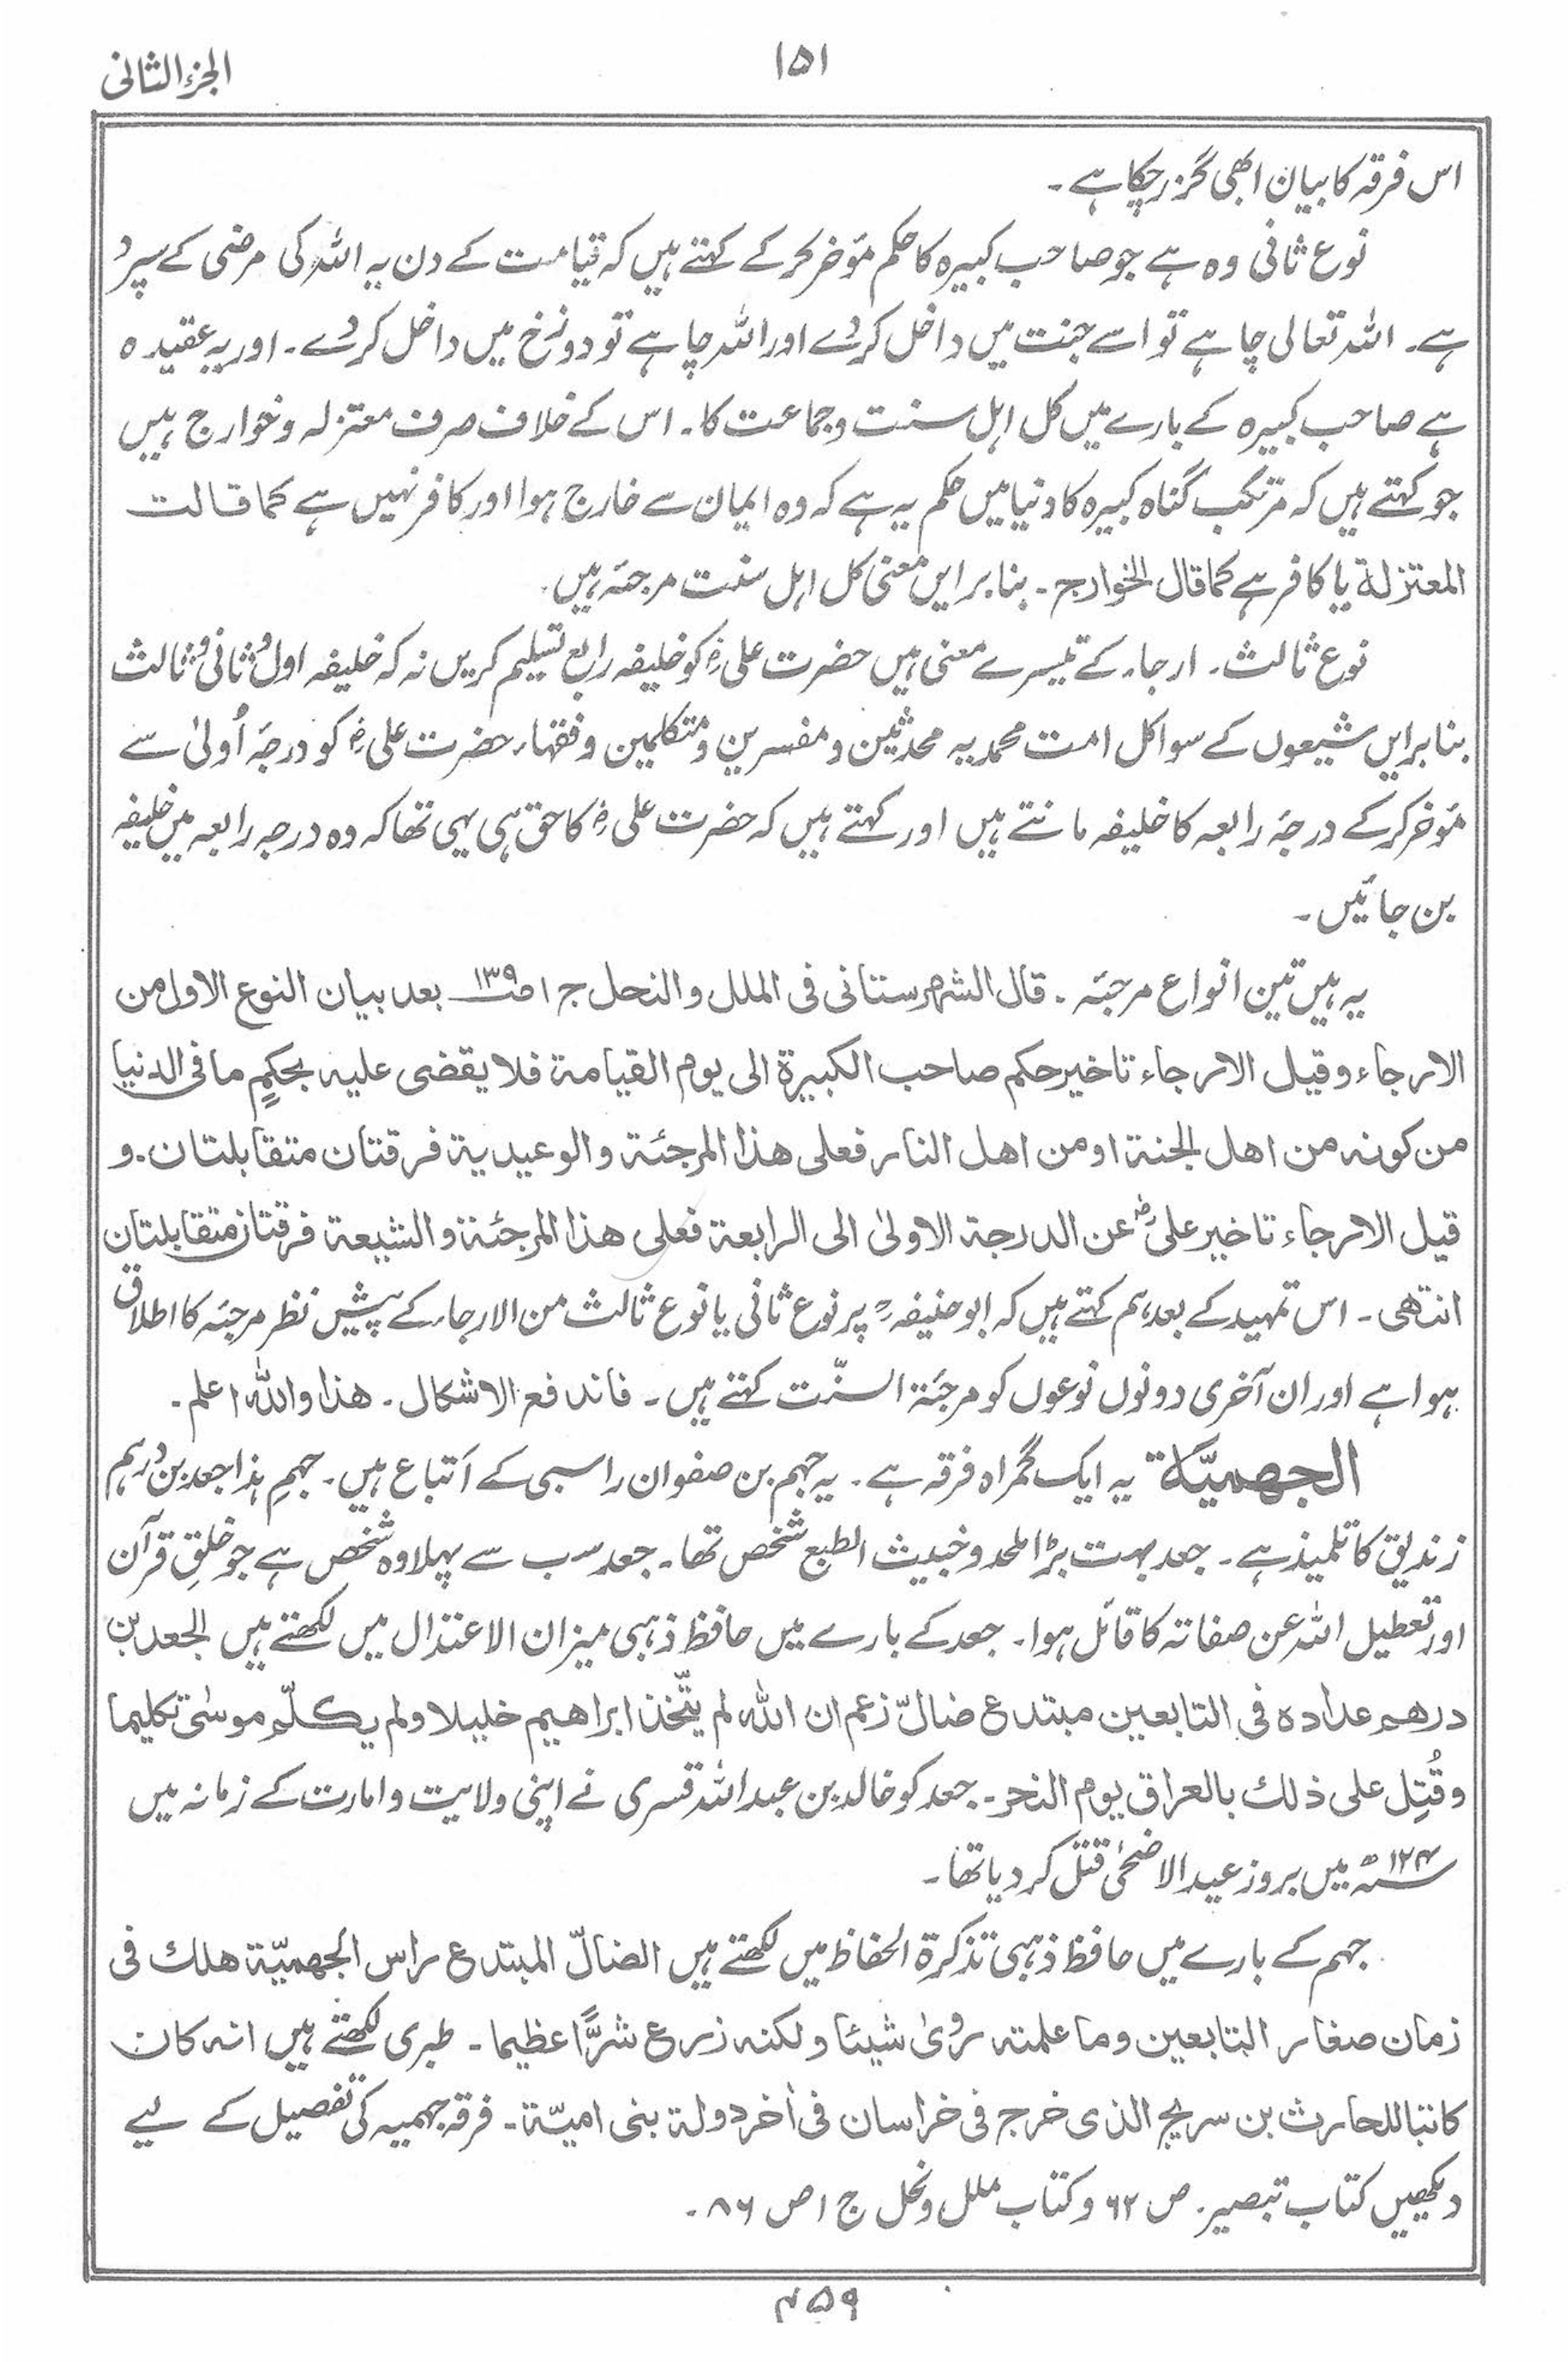 الجزء الثانی
۱۵۱
اس فرقہ کا بیان ابھی گزر چکا ہے ۔
نوع ثانی وہ ہے جو صاحب کبیرہ کا حکم مؤخر کرکے کہتے ہیں کہ قیامت کے دن یہ اللہ کی مرضی کے سپرد
ہے۔ اللہ تعالی چاہے تو اسے جنت میں داخل کردے اور اللہ چاہے تو دوزخ میں داخل کردے۔ اور یہ عقیدہ
ہے صاحب کبیرہ کے بارے میں کل اہل سنت وجماعت کا۔ اس کے خلاف صرف معتزلہ وخوارج ہیں
جو کہتے ہیں کہ مرتکب گناہ کبیرہ کا دنیا میں حکم یہ ہے کہ وہ ایمان سے خارج ہوا اور کافر نہیں ہے کما قالت
المعتزلة یا کافر ہے کما قال الخوارج ۔ بنا بر ایں معنی کل اہل سنت مرجئہ ہیں ۔
نوع ثالث۔ ارجاء کے تیسرے معنی ہیں حضرت علیؓ کو خلیفہ رابع تسلیم کریں نہ کہ خلیفہ اول و ثانی و ثالث
بنا بر ایں شیعوں کے سوا کل امت محمدیہ محدثین و مفسرین و متکلمین و فقہاء حضرت علیؓ کو درجۂ اُولیٰ سے
مؤخر کرکے درجۂ رابعہ کا خلیفہ مانتے ہیں اور کہتے ہیں کہ حضرت علیؓ کا حق ہی یہی تھا کہ وہ درجہ رابعہ میں خلیفہ
بن جائیں ۔
یہ ہیں تین انواع مرجئہ ۔ قال الشہرستانی فی الملل والنحل ج ۱ ص ۱۳۹ بعد بیان النوع الاول من
الارجاء وقیل الارجاء تاخیر حکم صاحب الکبیرة الی یوم القیامة فلا یقضی علیہ بحکمٍ ما فی الدنیا
من کونہ من اھل الجنة او من اھل النار فعلی ھذا المرجئة والوعیدیة فرقتان متقابلتان۔ و
قیل الارجاء تاخیر علیؓ عن الدرجة الاولیٰ الی الرابعة فعلی ھذا المرجئة والشیعة فرقتان متقابلتان
انتھی ۔ اس تمہید کے بعد ہم کہتے ہیں کہ ابوحنیفہؒ پر نوع ثانی یا نوع ثالث من الارجاء کے پیش نظر مرجئہ کا اطلاق
ہوا ہے اور ان آخری دونوں نوعوں کو مرجئۃ السنّت کہتے ہیں ۔ فاندفع الاشکال ۔ ھذا واللہ اعلم ۔
الجھمیّة یہ ایک گمراہ فرقہ ہے ۔ یہ جہم بن صفوان راسبی کے اَتباع ہیں ۔ جہمِ ہذا جعد بن درہم
زندیق کا تلمیذ ہے ۔ جعد بہت بڑا ملحد و خبیث الطبع شخص تھا۔ جعد سب سے پہلا وہ شخص ہے جو خلقِ قرآن
اور تعطیل اللہ عن صفاتہ کا قائل ہوا ۔ جعد کے بارے میں حافظ ذہبی میزان الاعتدال میں لکھتے ہیں الجعد بن
درھم عدادہ فی التابعین مبتدع ضالّ زعم ان اللہ لم یتّخذ ابراھیم خلیلا ولم یکلّم موسٰی تکلیما
وقُتِل علی ذلك بالعراق یوم النحر۔ جعد کو خالد بن عبداللہ قسری نے اپنی ولایت و امارت کے زمانہ میں
۱۲۴ھ میں بروز عید الاضحیٰ قتل کر دیا تھا ۔
جہم کے بارے میں حافظ ذہبی تذکرۃ الحفاظ میں لکھتے ہیں الضالّ المبتدع راس الجھمیّة ھلك فی
زمان صغار التابعین وما علمتہ رویٰ شیئا ولکنہ زرع شرًّا عظیما ۔ طبری لکھتے ہیں انہ کان
کاتبا للحارث بن سریج الذی خرج فی خراسان فی اٰخر دولة بنی امیّة ۔ فرقہ جہمیہ کی تفصیل کے لیے
دیکھیں کتاب تبصیر ص ۶۲ و کتاب ملل ونحل ج ۱ ص ۸۶ ۔
۴۵۹